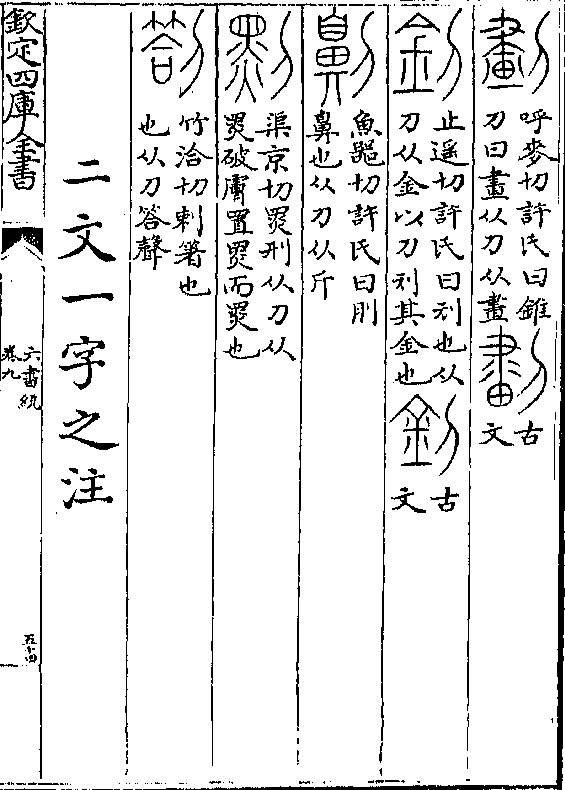 劃 呼麥切許氏曰錐
刀曰畫从刀从畫 劃 古
文
釗 止遥切許氏曰刓也从
刀从金以刀刓其金也 釗 古
文
劓 魚器切許氏曰刖
鼻也从刀从斤
剠 渠京切黑刑从刀从
黑破膚置黑而黑也
劄 竹洽切刺箸也
也从刀答聲
二文一字之注
欽定四庫全書
六書統
卷九
五十四